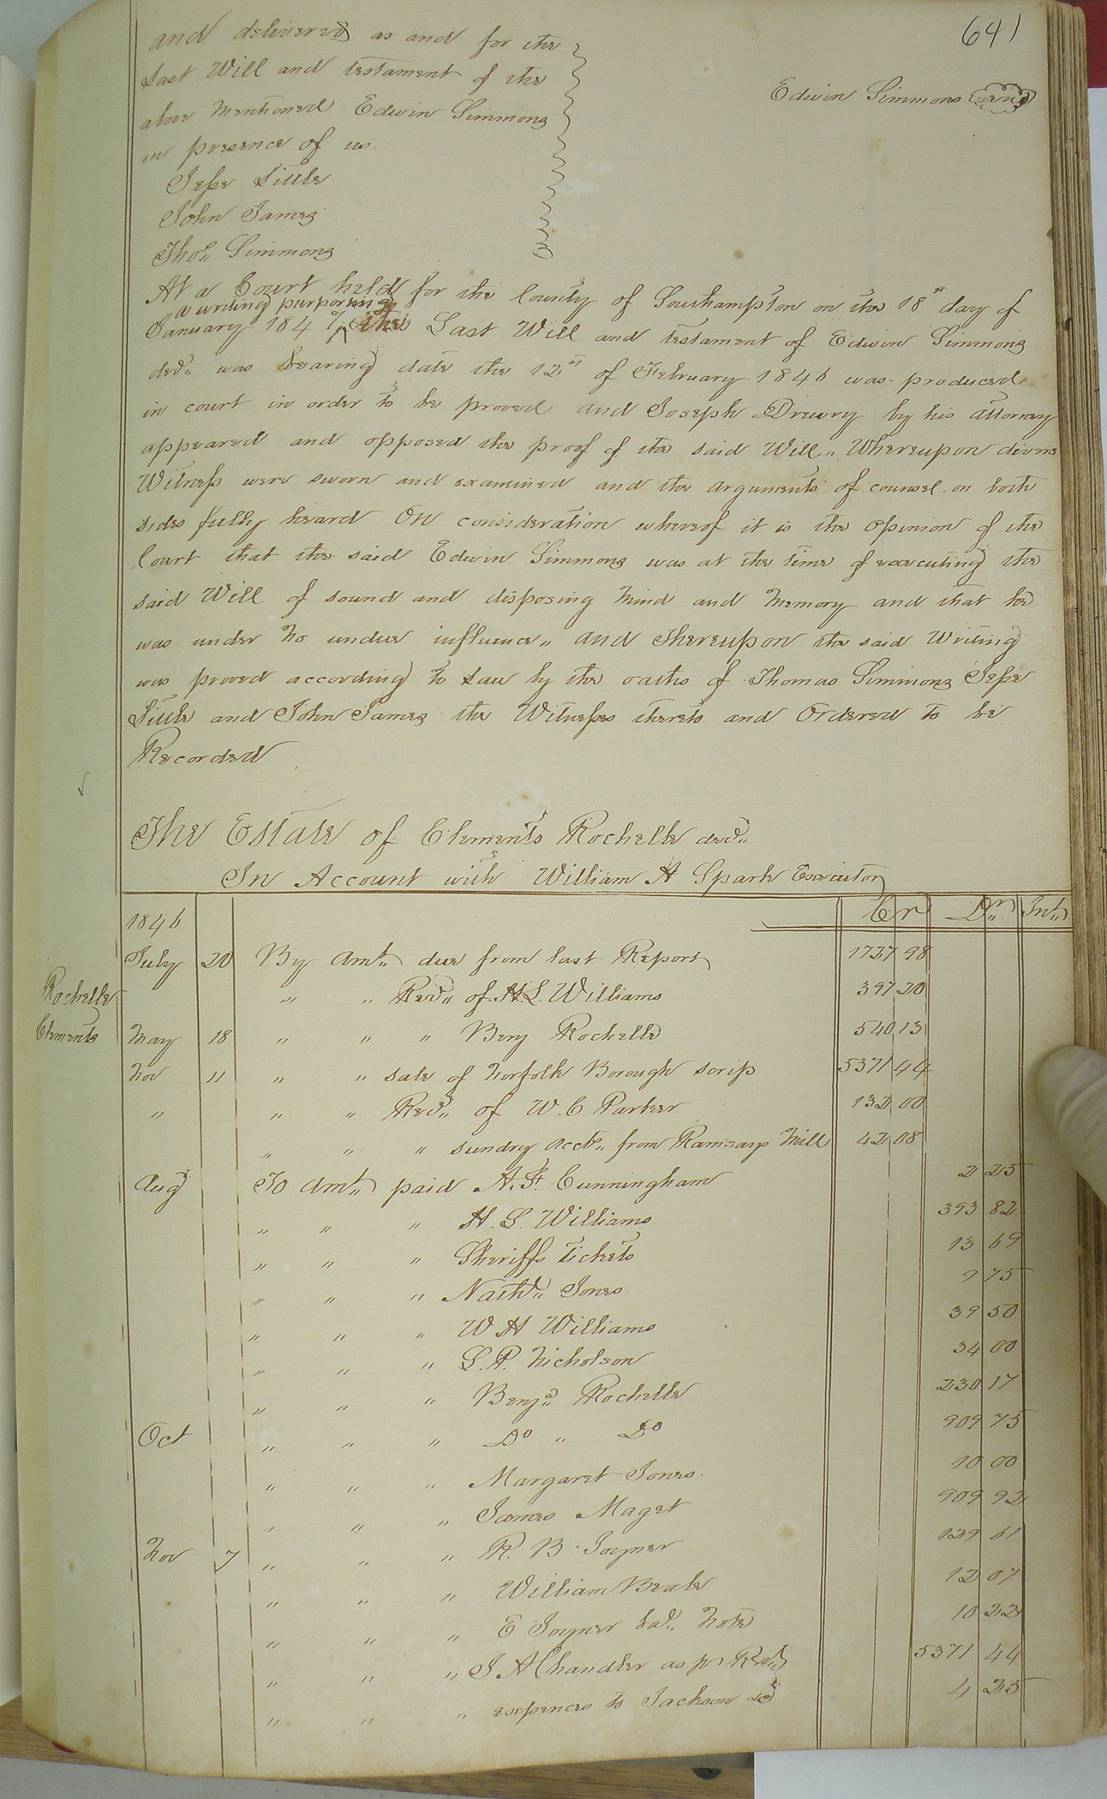 641
and delivered as and for the
Last Will and testament of the
above mentioned Edwin Simmons
in presence of us
Edwin Simmons seal
Jesse Little
John James
Thos. Simmons
At a Court held for the County of Southampton on the 18th day of
a writing purporting
January 1847 the Last Will and testament of Edwin Simmons
decd. was bearing date the 12th of February 1846 was produced
in court in order to be proved and Joseph Drewry by his attorney
appeared and opposed the proof of the said Will. Whereupon divers
Witness were sworn and examined and the arguments of counsel on both
sides fully heard On consideration whereof it is the opinion of the
Court that the said Edwin Simmons was at the time of executing the
said Will of sound and disposing mind and memory and that he
was under no undue influence, and thereupon the said Writing
was proved according to Law by the oaths of Thomas Simmons Jesse
Little and John James the Witnesses thereto and Ordered to be
Recorded
The Estate of Clements Rochelle decd.
In Account with William A Spark Executor
1846 Cr Dr. Int.
July 20 By Amt. due from last Report 1737 98
Rochelle
" " Recd. of H. L. Williams 397 20
Clements
May 18 " " " Benj Rochelle 540 13
Nov 11 " " sale of Norfolk Borough scrip 5371 44
" " " Recd. of W. C Parker 132 00
" " " sundry accts. from Ramsays Mill 42 08
Aug To Amt. paid A. F. Cunningham 2 25
" " " H. L. Williams 393 82
" " " Sheriffs tickets 13 69
" " " Nathl. Jones 9 75
" " " W H Williams 39 50
" " " L. P. Nicholson 34 00
" " " Benja. Rochelle 230 17
Oct " " " Do " Do 909 75
" " " Margaret Jones 10 00
" " " James Maget 909 92
Nov 7 " " " R. B. Joyner 129 61
" " " William Beale 12 07
" " " E Joyner bal. note 10 22
" " " J A Chandler as pr Rect. 5371 44
" " " expences to Jackson 4 25